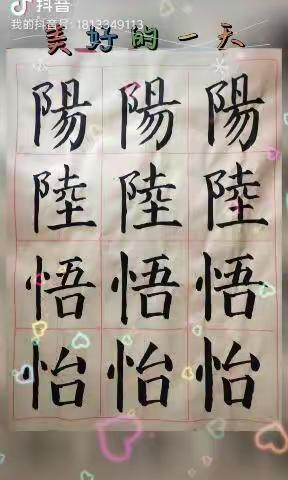 抖音
我的抖音号：1813349113
美好的一天
陽陽陽
陸陸陸
悟悟悟
怡怡怡